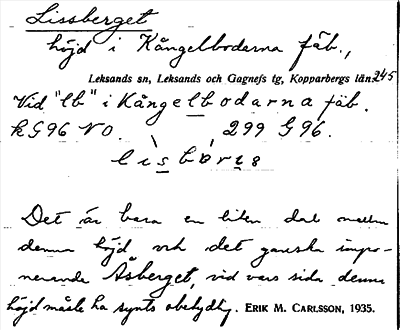 Lissberget
höjd i Kångelbodarna fäb.,
Leksands sn, Leksands och Gagnefs tg, Kopparbergs län. 245
Vid "lb" i Kångelbodarna fäb.
kG96 NO. 299 G96.
Det är bara en liten dal mellan
denna höjd och det ganska impo-
nerande Åsberget, vid vars sida denna
höjd måste ha synts obetydlig. ERIK M. CARLSSON, 1935.